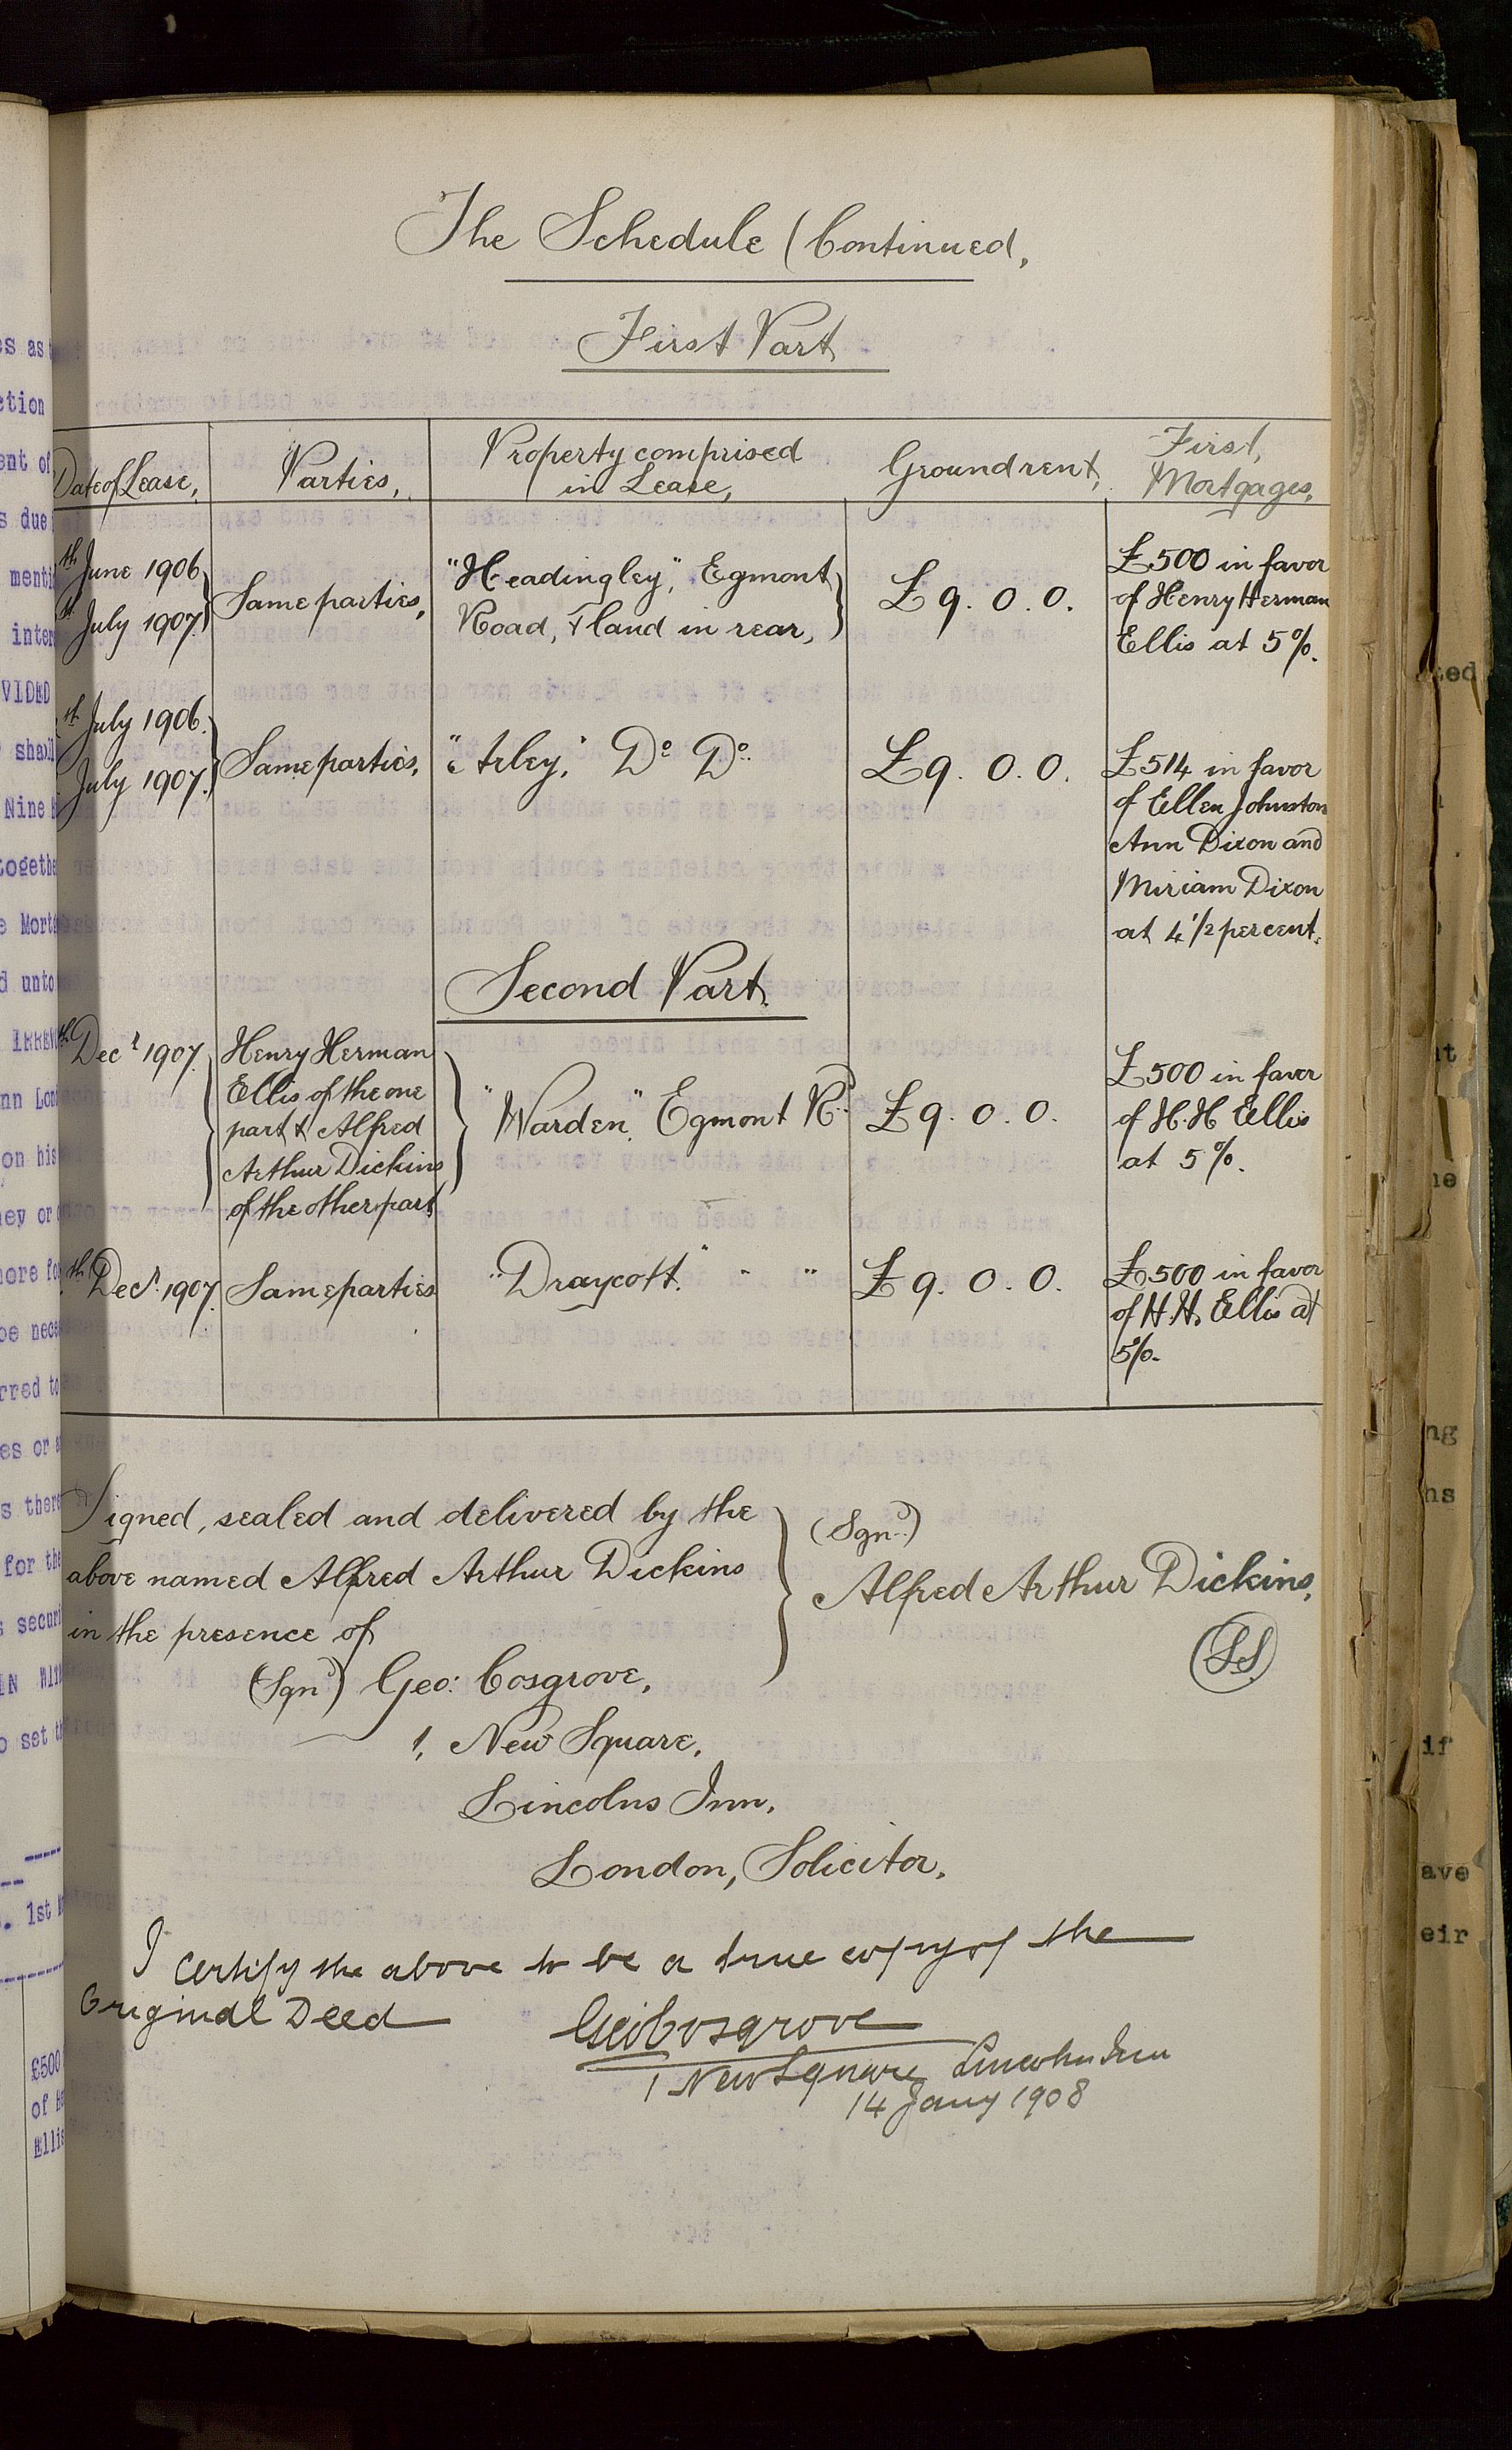 The Schedule (Continued,
First Part
Date of Lease, Parties, Property comprised in Lease, Ground rent, First, Mortgages,
th June 1906
July 1907
Same parties,
"Headingley," Egmont
Road, & land in rear,
£9. 0. 0.
£500 in favor
of Henry Herman
Ellis at 5%.
th July 1906.
July 1907.
Same parties,
"Arley," Do Do.
£9. 0. 0.
£514 in favor
of Ellen Johnston
Ann Dixon and
Miriam Dixon
at 4 1/2 per cent.
Second Part
th Decr 1907.
Henry Herman
Ellis of the one
part & Alfred
Arthur Dickins
of the other part
"Warden," Egmont Rd.
£9. 0. 0.
£500 in favor
of H.H Ellis
at 5%.
th Decr. 1907.
Same parties
"Draycott." " "
£9. 0. 0.
£500 in favor
of H.H. Ellis at
5%.
Signed, sealed and delivered by the
above named Alfred Arthur Dickins
in the presence of
(Sgnd.)
Alfred Arthur Dickins,
(LS)
(Sgnd) Geo: Cosgrove,
1, New Square,
Lincolns Inn,
London, Solicitor.
I certify the above to be a true copy of the
Original Deed
Geo Cosgrove
1 New Square Lincolns Inn
14 Jany 1908